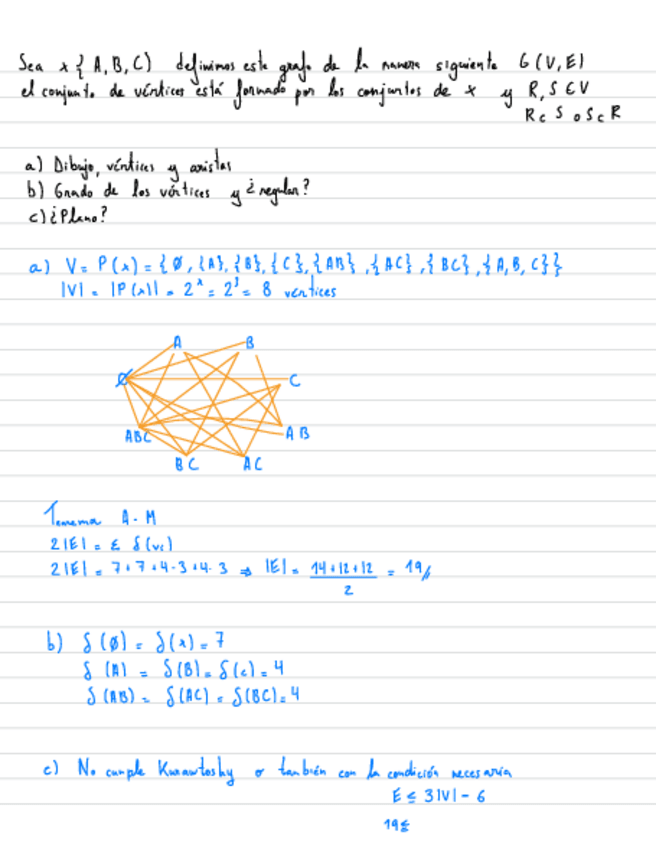 Sea x { A, B, C) definimos este grafo de la manera siguiente G (V, E)
el conjunto de vértices está formado por los conjuntos de x y R, S ⊂ V
R ⊂ S o S ⊂ R
a) Dibujo, vértices y aristas
b) Grado de los vértices y ¿regular?
c) ¿Plano?
a) V = P(x) = { Ø, {A}, {B}, {C}, {AB}, {AC}, {BC}, {A, B, C}}
|V| = |P(x)| = 2^x = 2^3 = 8 vértices
A B
Ø C
ABC AB
BC AC
Teorema A.M
2|E| = Σ δ(vi)
2|E| = 7+7+4·3+4·3 ⇒ |E| = (14+12+12)/2 = 19//
b) δ(Ø) = δ(x) = 7
δ(A) = δ(B) = δ(c) = 4
δ(AB) = δ(AC) = δ(BC) = 4
c) No cumple Kurawtosky o también con la condición necesaria
E ≤ 3|V| - 6
19≤